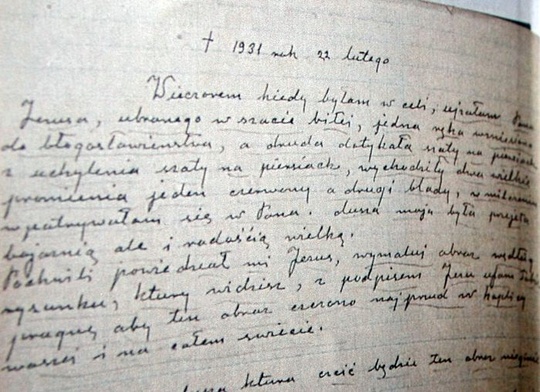 † 1931 rok 22 lutego
Wieczorem kiedy byłam w celi, ujrzałam Pana
Jezusa, ubranego w szacie białej, jedna ręka wzniesiona
do błogosławieństwa, a druda dotykała szaty na piersiach
z uchylenia szaty na piersiach, wychodziły dwa wielkie
promienia jeden czerwony a drugi blady, w milczeniu
wpatrywałam się w Pana. dusza moja była przejęta
bojaźnią ale i radością wielką.
Po chwili powiedział mi Jezus, wymaluj obraz według
rysunku, ktury widzisz, z podpisem Jezu ufam Tobie,
pragnę aby ten obraz czczono najprud w kaplicy
waszej i na całem świecie.
dusza ktura czcić będzie ten obraz nie zginie